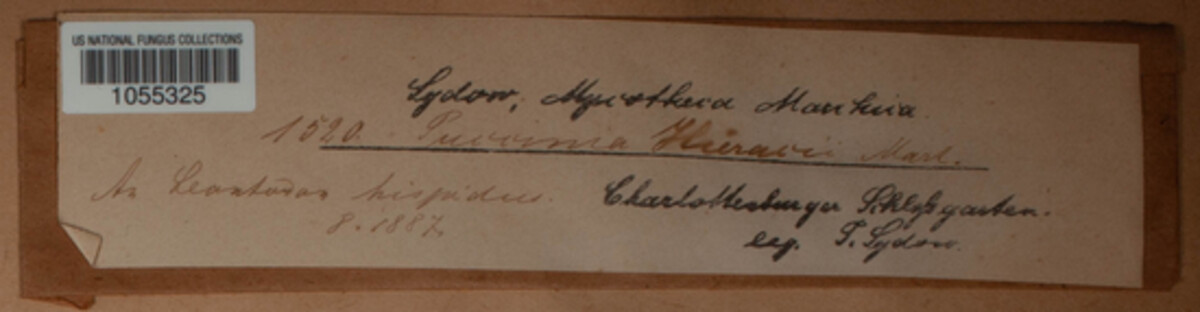 US NATIONAL FUNGUS COLLECTIONS
1055325
Sydow, Mycotheca Marchica
1520. Puccinia Hieracii Mart.
An Leontodon hispidus. Charlottenburger Schloßgarten.
8.1887. leg. P. Sydow.